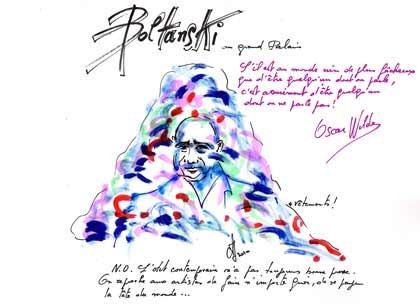 Boltanski
au grand Palais
S'il est au monde rien de plus fâcheux
que d'être quelqu'un dont on parle,
c'est assurément d'être quelqu'un
dont on ne parle pas !
Oscar Wilde
vêtements !
2010
N.O. L'art contemporain n'a pas toujours bonne presse.
On reproche aux artistes de faire n'importe quoi, de se payer
la tête du monde ...